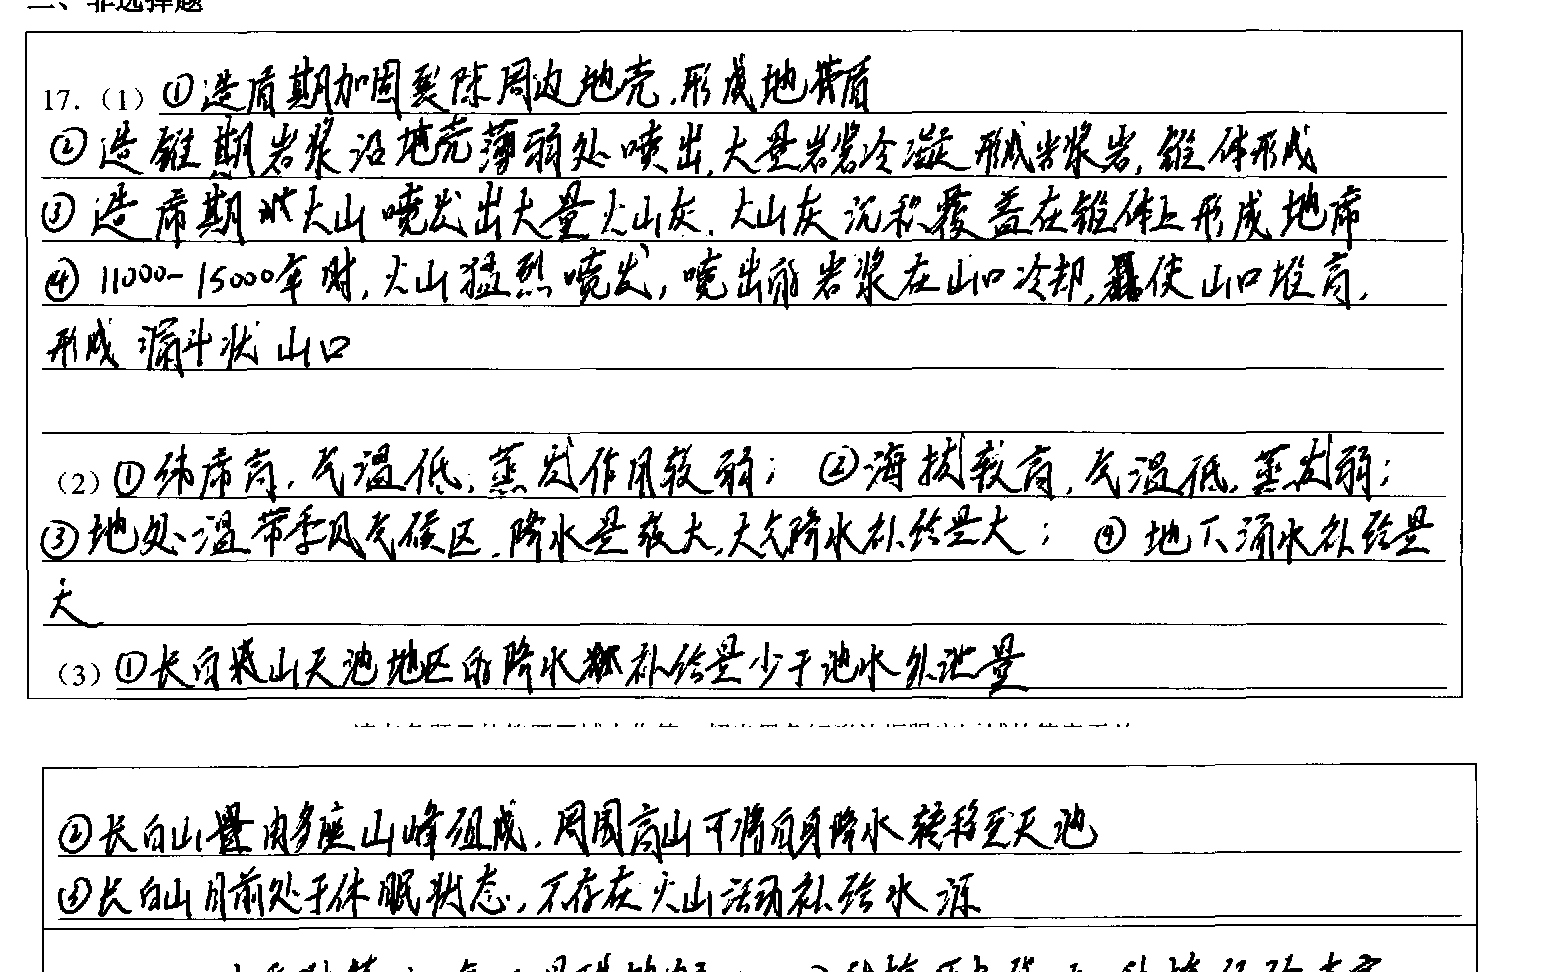 二、非选择题
17.（1）①造盾期加固裂隙周边地壳,形成地盾
②造锥期岩浆沿地壳薄弱处喷出,大量岩浆冷凝形成岩浆岩,锥体形成
③造席期火山喷发出大量火山灰,火山灰沉积覆盖在锥体上形成地席
④11000-15000年时,火山猛烈喷发,喷出的岩浆在山口冷却,使山口堆高,
形成漏斗状山口
（2）①纬度高,气温低,蒸发作用较弱; ②海拔较高,气温低,蒸发弱;
③地处温带季风气候区,降水量较大,大气降水补给量大; ④地下涌水补给量
大
（3）①长白山天池地区的降水补给量少于池水外泄量
②长白山由多座山峰组成,周围高山可将自身降水转移至天池
③长白山目前处于休眠状态,不存在火山活动补给水源